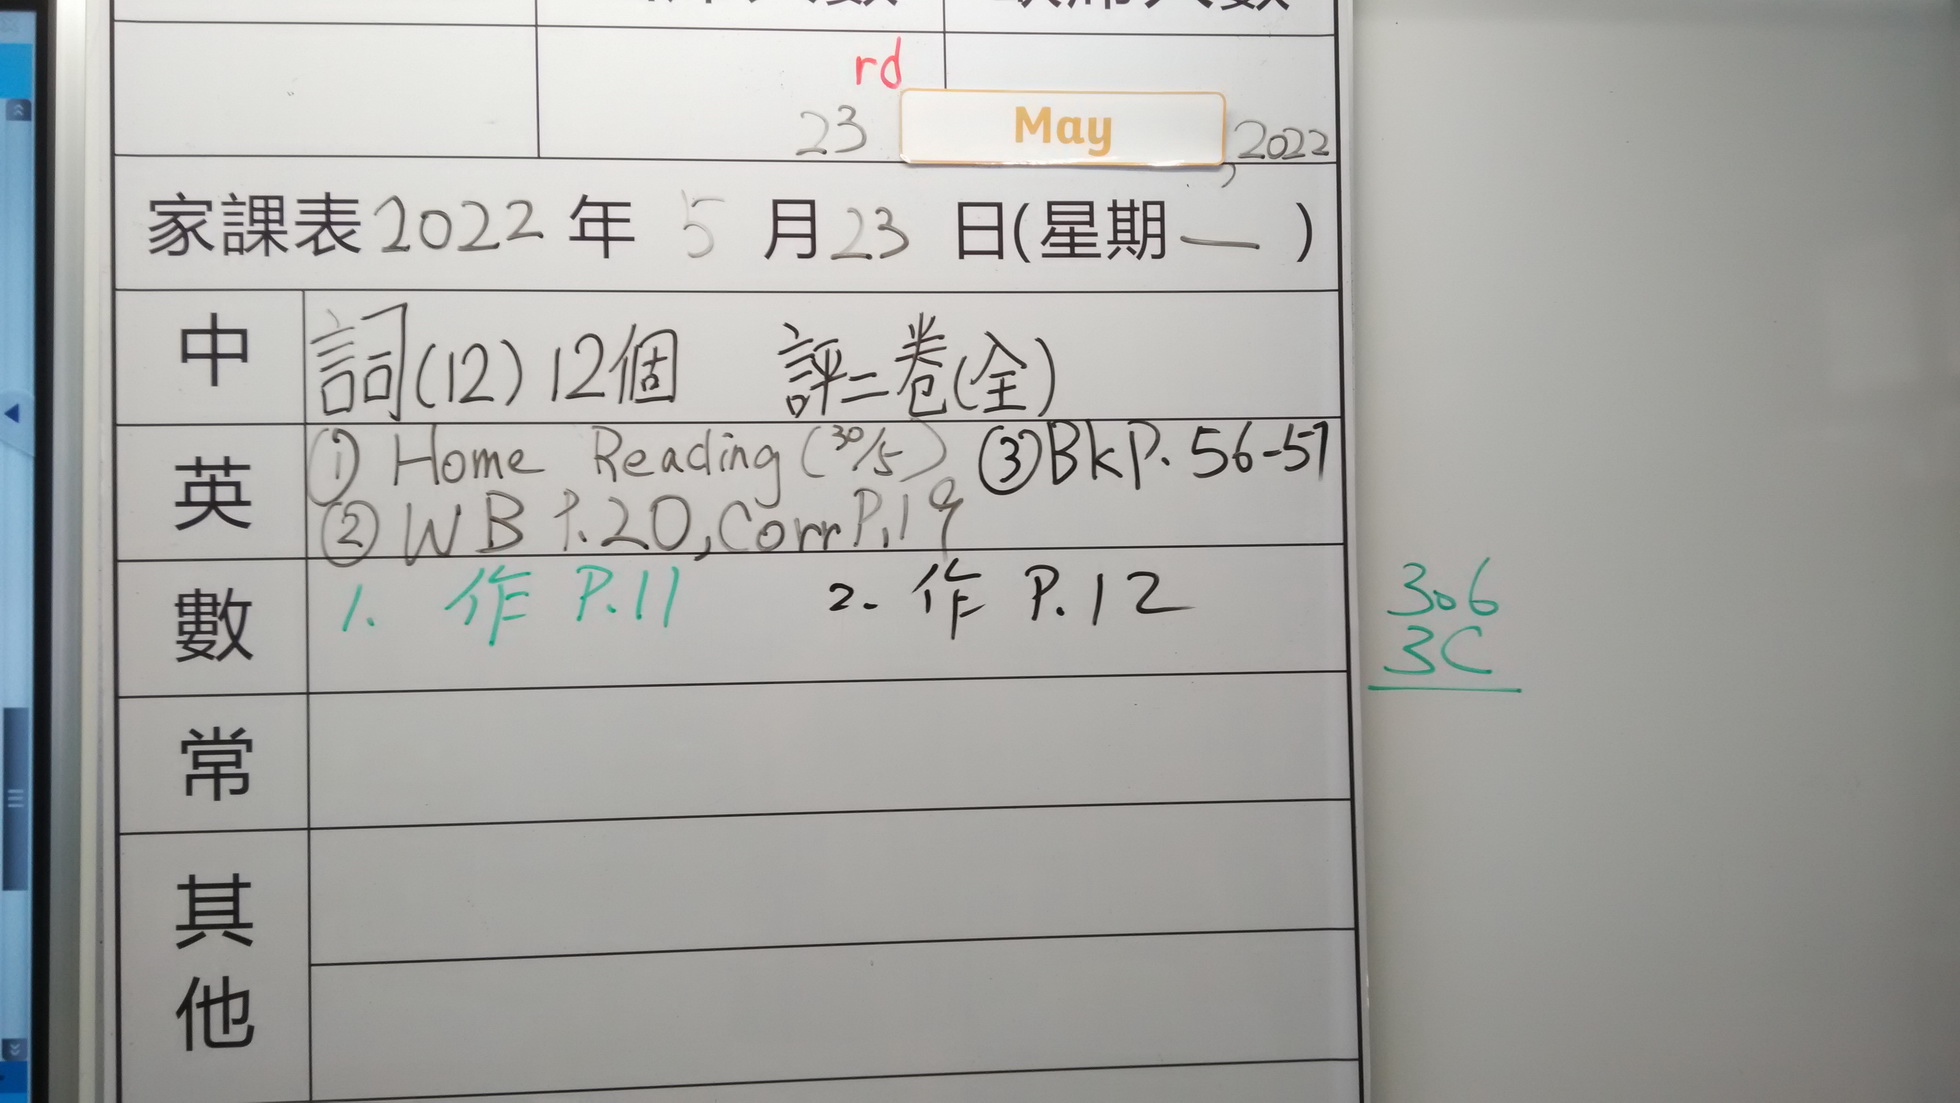 rd
23 May 2022
家課表2022年 5月23日(星期一)
中 詞(12)12個 評二卷(全)
英 ① Home Reading (30/5) ③BkP. 56-57
② WB P.20, Corr P.19
數 1. 作 P.11 2. 作 P.12
306
3C
常
其
他